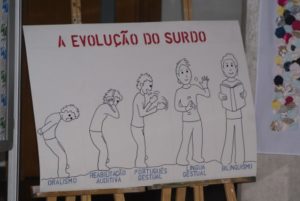 A EVOLUÇÃO DO SURDO
ORALISMO
REABILITAÇÃO
AUDITIVA
PORTUGUÊS
GESTUAL
LINGUA
GESTUAL
BILINGUISMO